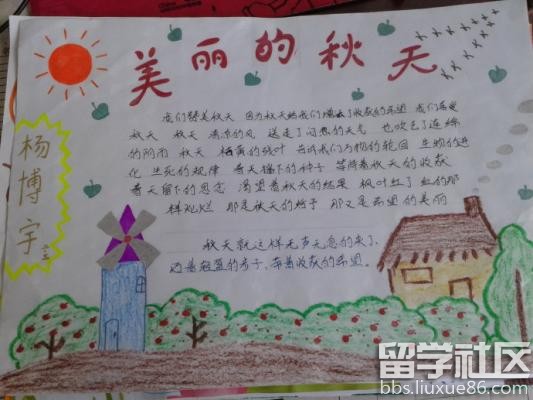 美丽的秋天
我们赞美秋天 因为秋天给我们带来了收获的希望 我们喜爱
秋天 秋天 清凉的风 送走了闷热的天气 也吹走了连绵
的阴雨 秋天 枯黄的残叶 告诉我们万物的轮回 生物的进
化 生死的规律 春天播下的种子 等待着秋天的收获
春天留下的思念 渴望着秋天的结果 枫叶红了 红的那
样灿烂 那是秋天的给予 那又是希望的美丽
秋天就这样无声无息的来了,
迈着轻盈的步子,带着收获的希望。
杨博宇
留学社区
bbs.liuxue86.com